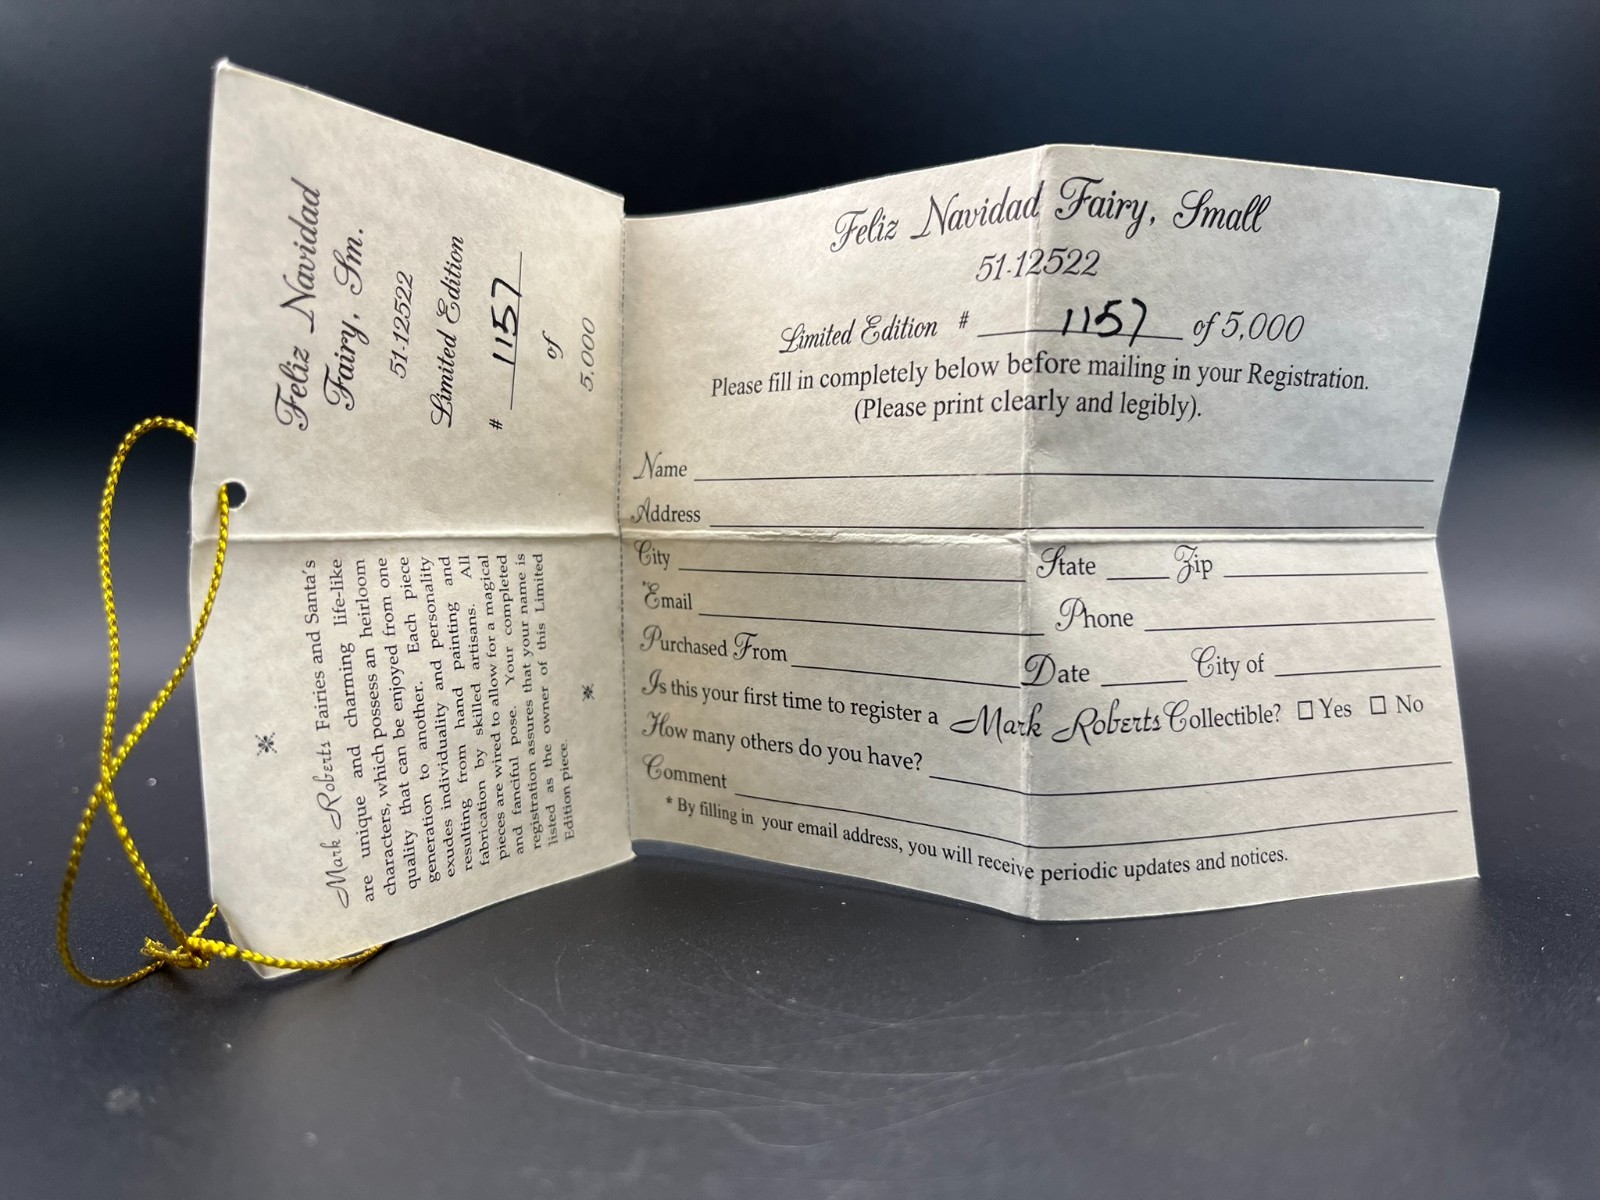 Feliz Navidad
Fairy, Sm.
51-12522
Limited Edition
# 1157
of
5,000
Mark Roberts Fairies and Santa's
are unique and charming life-like
characters, which possess an heirloom
quality that can be enjoyed from one
generation to another. Each piece
exudes individuality and personality
resulting from hand painting and
fabrication by skilled artisans. All
pieces are wired to allow for a magical
and fanciful pose. Your completed
registration assures that your name is
listed as the owner of this Limited
Edition piece.
Feliz Navidad Fairy, Small
51-12522
Limited Edition # 1157 of 5,000
Please fill in completely below before mailing in your Registration.
(Please print clearly and legibly).
Name
Address
City State Zip
*Email Phone
Purchased From Date City of
Is this your first time to register a Mark Roberts Collectible? ☐ Yes ☐ No
How many others do you have?
Comment
* By filling in your email address, you will receive periodic updates and notices.